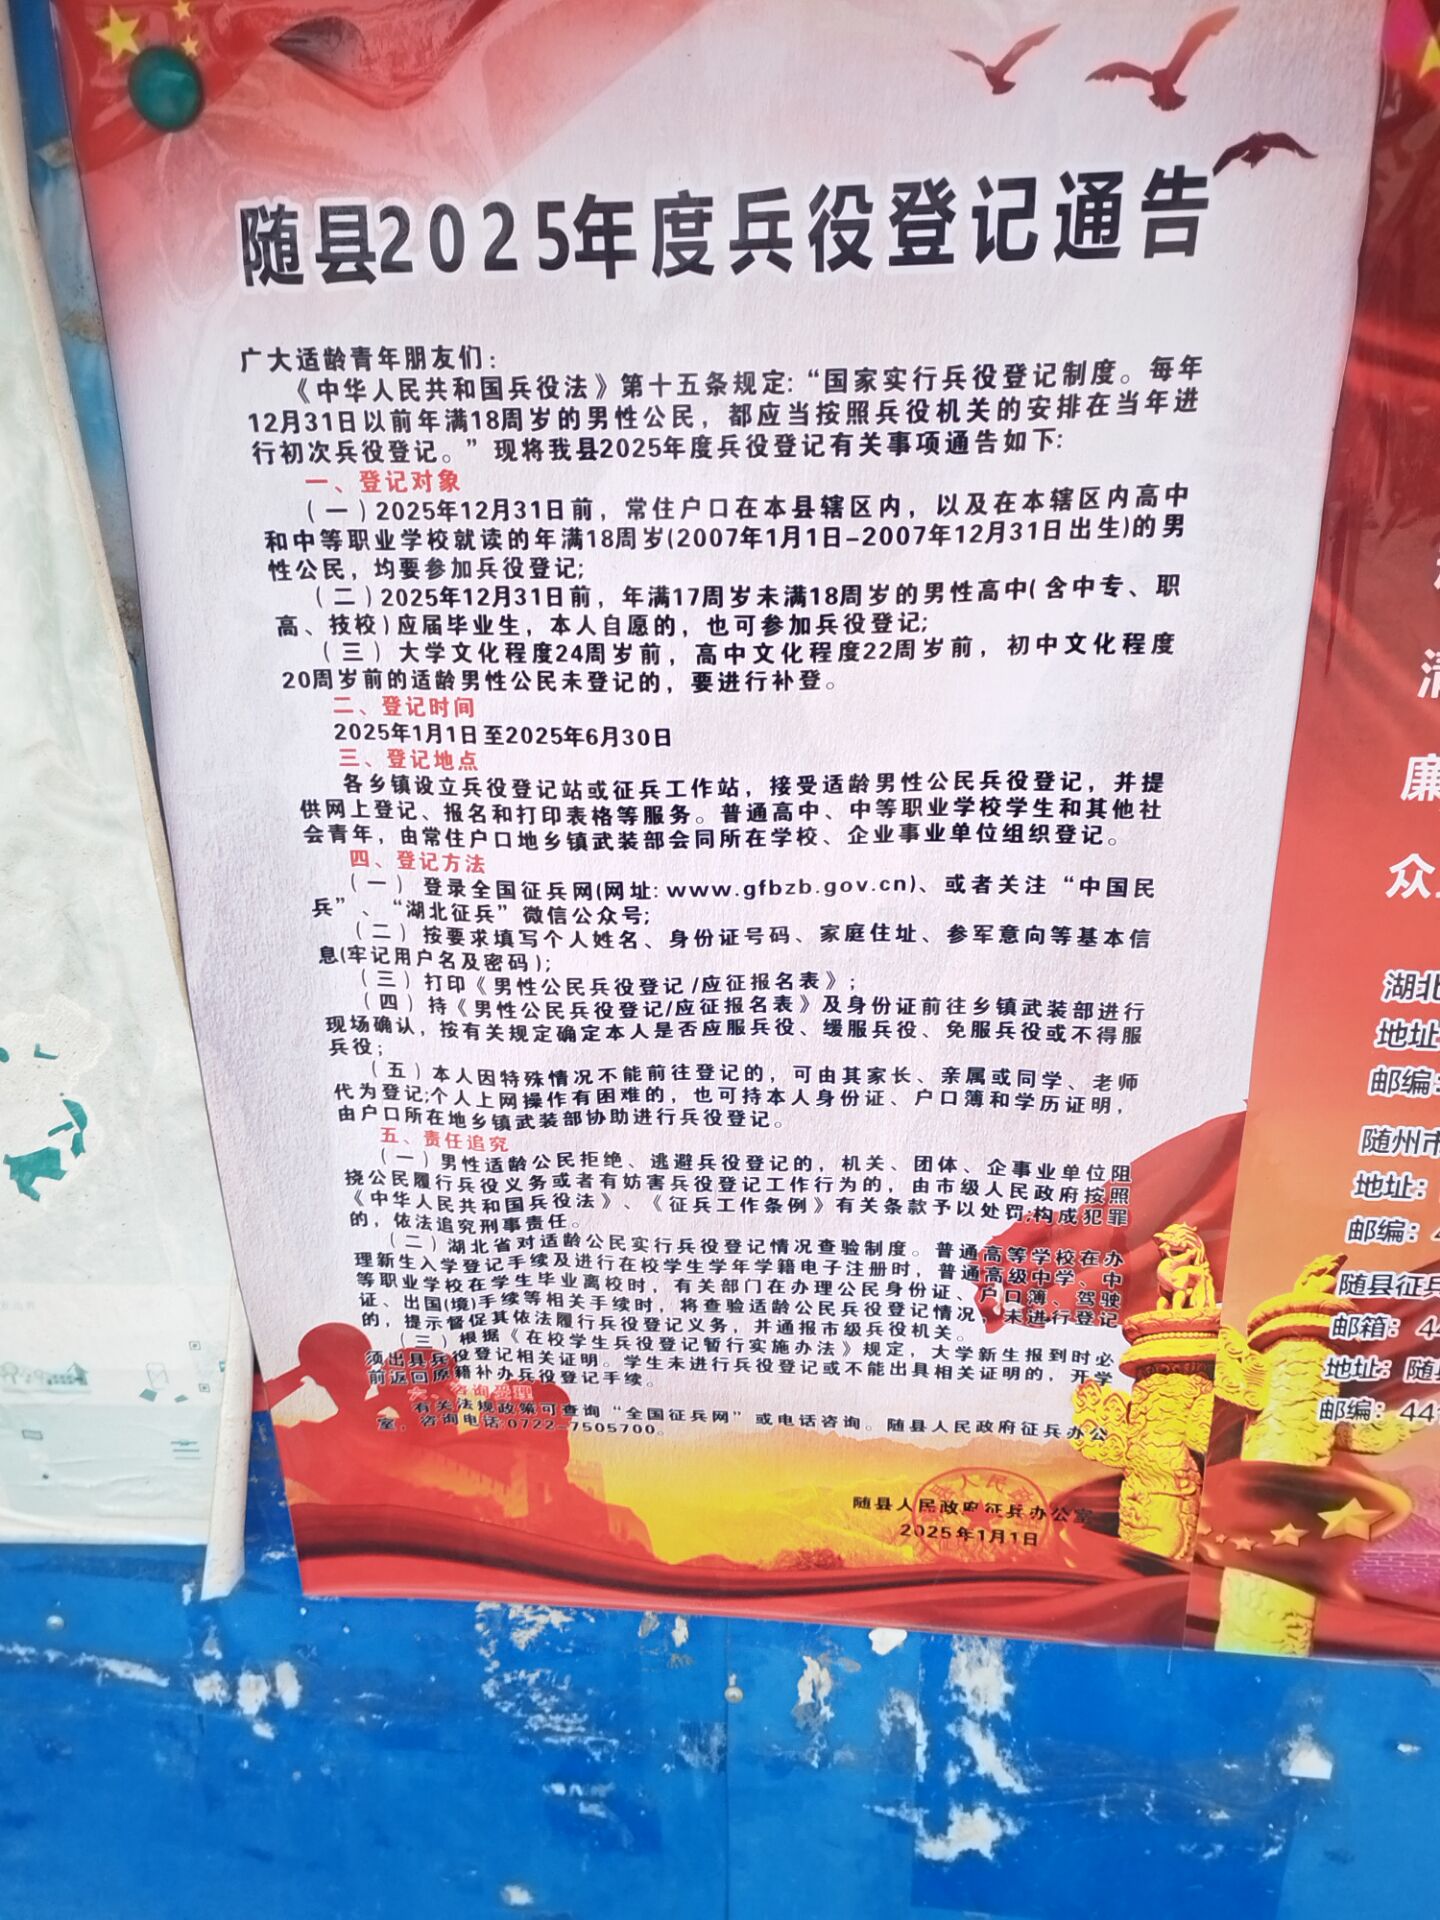 随县2025年度兵役登记通告
广大适龄青年朋友们：
《中华人民共和国兵役法》第十五条规定:“国家实行兵役登记制度。每年
12月31日以前年满18周岁的男性公民，都应当按照兵役机关的安排在当年进
行初次兵役登记。”现将我县2025年度兵役登记有关事项通告如下:
一、登记对象
(一)2025年12月31日前，常住户口在本县辖区内，以及在本辖区内高中
和中等职业学校就读的年满18周岁(2007年1月1日-2007年12月31日出生)的男
性公民，均要参加兵役登记;
(二)2025年12月31日前，年满17周岁未满18周岁的男性高中(含中专、职
高、技校)应届毕业生，本人自愿的，也可参加兵役登记;
(三)大学文化程度24周岁前，高中文化程度22周岁前，初中文化程度
20周岁前的适龄男性公民未登记的，要进行补登。
二、登记时间
2025年1月1日至2025年6月30日
三、登记地点
各乡镇设立兵役登记站或征兵工作站，接受适龄男性公民兵役登记，并提
供网上登记、报名和打印表格等服务。普通高中、中等职业学校学生和其他社
会青年，由常住户口地乡镇武装部会同所在学校、企业事业单位组织登记。
四、登记方法
(一) 登录全国征兵网(网址: www.gfbzb.gov.cn)、或者关注“中国民
兵”、“湖北征兵”微信公众号;
(二)按要求填写个人姓名、身份证号码、家庭住址、参军意向等基本信
息(牢记用户名及密码);
(三)打印《男性公民兵役登记/应征报名表》;
(四)持《男性公民兵役登记/应征报名表》及身份证前往乡镇武装部进行
现场确认，按有关规定确定本人是否应服兵役、缓服兵役、免服兵役或不得服
兵役;
(五)本人因特殊情况不能前往登记的，可由其家长、亲属或同学、老师
代为登记;个人上网操作有困难的，也可持本人身份证、户口簿和学历证明，
由户口所在地乡镇武装部协助进行兵役登记。
五、责任追究
(一)男性适龄公民拒绝、逃避兵役登记的，机关、团体、企事业单位阻
挠公民履行兵役义务或者有妨害兵役登记工作行为的，由市级人民政府按照
《中华人民共和国兵役法》、《征兵工作条例》有关条款予以处罚;构成犯罪
的，依法追究刑事责任。
(二)湖北省对适龄公民实行兵役登记情况查验制度。普通高等学校在办
理新生入学登记手续及进行在校学生学年学籍电子注册时，普通高级中学、中
等职业学校在学生毕业离校时，有关部门在办理公民身份证、户口簿、驾驶
证、出国(境)手续等相关手续时，将查验适龄公民兵役登记情况，未进行登记
的，提示督促其依法履行兵役登记义务，并通报市级兵役机关。
(三)根据《在校学生兵役登记暂行实施办法》规定，大学新生报到时必
须出具兵役登记相关证明。学生未进行兵役登记或不能出具相关证明的，开学
前返回原籍补办兵役登记手续。
六、咨询受理
有关法规政策可查询“全国征兵网”或电话咨询。随县人民政府征兵办公
室，咨询电话:0722-7505700。
随县人民政府征兵办公室
2025年1月1日
清
廉
众
湖北
地址
邮编:
随州市
地址:
邮编: 4
随县征兵
邮箱: 44
地址: 随县
邮编: 441